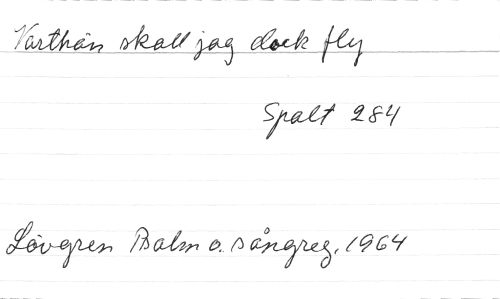 Varthän skall jag dock fly
Spalt 284
Lövgren Psalm o. sångreg. 1964